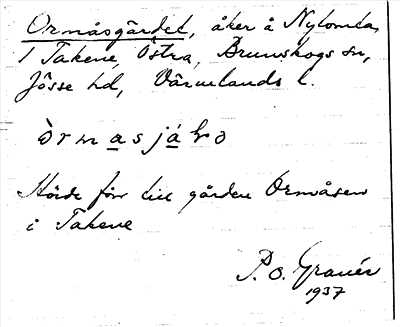 Ormåsgärdet, åker å Nylomta,
1 Takene, Östra, Brunskogs sn,
Jösse hd, Värmlands l.
òrmasjáḷo
Hörde förr till gården Ormåsen
i Takene
P. O. Granér
1937